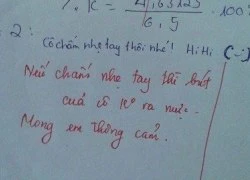 % K = 4,63125 / 6,5 . 100%
2:
Cô chấm nhẹ tay thôi nhé! HiHi (-:)
Nếu chấm nhẹ tay thì bút
của cô K° ra mực.
Mong em thông cảm.